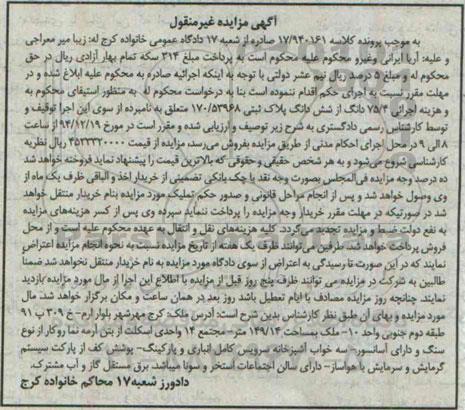 آگهی مزایده غیرمنقول
به موجب پرونده کلاسه ۱۷/۹۴۰۱۶۱ صادره از شعبه ۱۷ دادگاه عمومی خانواده کرج له: زیبا میر معراجی
و علیه: آریا ایرانی وغیرو محکوم علیه محکوم است به پرداخت مبلغ ۳۱۴ سکه تمام بهار آزادی ریال در حق
محکوم له و مبلغ ۵ درصد ریال نیم عشر دولتی با توجه به اینکه اجرائیه صادره به محکوم علیه ابلاغ شده و در
مهلت مقرر نسبت به اجرای حکم اقدام ننموده است بنا به درخواست محکوم له به منظور استیفای محکوم به
و هزینه اجرائی ۷۵/۴ دانگ از شش دانگ پلاک ثبتی ۱۷۰/۵۳۹۶۸ متعلق به نامبرده از سوی این اجرا توقیف و
توسط کارشناس رسمی دادگستری به شرح زیر توصیف و ارزیابی شده و مقرر است در مورخ ۹۴/۱۲/۱۹ از ساعت
۸ الی ۹ در محل اجرای احکام مدنی از طریق مزایده بفروش می‌رسد، مزایده از قیمت ۴۵۲۳۳۲۰۰۰۰ ریال نظریه
کارشناسی شروع می‌شود و به هر شخص حقیقی و حقوقی که بالاترین قیمت را پیشنهاد نماید فروخته خواهد شد
ده درصد وجه مزایده فی‌المجلس بصورت وجه نقد یا چک بانکی تضمینی از خریدار اخذ و الباقی ظرف یک ماه از
وی وصول خواهد شد و پس از انجام مراحل قانونی و صدور حکم تملیک مورد مزایده بنام خریدار منتقل خواهد
شد در صورتیکه در مهلت مقرر خریدار وجه مزایده را پرداخت ننماید سپرده وی پس از کسر هزینه‌های مزایده
به نفع دولت ضبط و مزایده تجدید می‌گردد. کلیه هزینه‌های نقل و انتقال به عهده محکوم علیه است و از محل
فروش پرداخت خواهد شد. طرفین می‌توانند ظرف یک هفته از تاریخ مزایده نسبت به نحوه انجام مزایده اعتراض
نمایند که در این صورت تا رسیدگی به اعتراض از سوی دادگاه مورد مزایده به نام خریدار منتقل نخواهد شد ضمناً
طالبین به شرکت در مزایده می توانند ظرف پنج روز قبل از مزایده با اطلاع این اجرا از مال مورد مزایده بازدید
نمایند. چنانچه روز مزایده مصادف با ایام تعطیل باشد روز بعد در همان ساعت و مکان برگزار خواهد شد. مال
مورد مزایده و بهای آن طبق نظر کارشناس بدین شرح است: آدرس ملک: کرج مهرشهر بلوار ارم- خ ۳۰۹ پ ۹۱
طبقه دوم جنوبی واحد ۱۰- ملک بمساحت ۱۴۹/۱۴ متر- مجتمع ۱۴ واحدی اسکلت از بتن آرمه نما روکار از نوع
سنگ و دارای آسانسور- سه خواب آشپزخانه سرویس کامل انباری و پارکینگ- پوشش کف از پارکت سیستم
گرمایش و سرمایش با هواساز- دارای سالن اجتماعات استخر و سونا میباشد. برق مستقل گاز و آب مشترک.
دادورز شعبه ۱۷ محاکم خانواده کرج